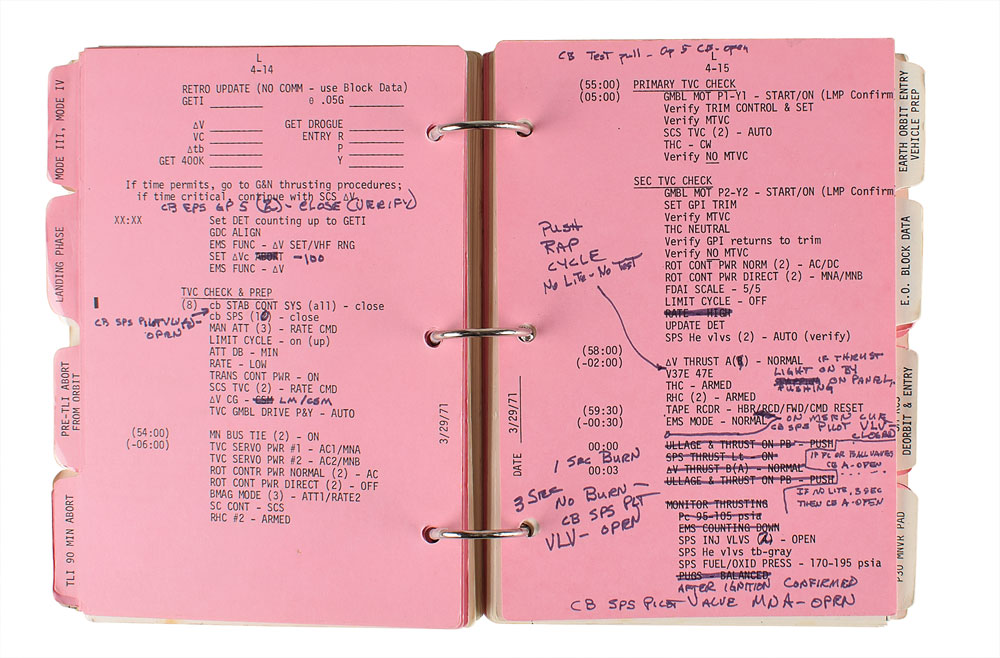 L
4-14
RETRO UPDATE (NO COMM - use Block Data)
GETI θ .05G
ΔV GET DROGUE
VC ENTRY R
Δtb P
GET 400K Y
If time permits, go to G&N thrusting procedures;
if time critical, continue with SCS ΔV
CB EPS GP 5 (2) - CLOSE (VERIFY)
XX:XX Set DET counting up to GETI
GDC ALIGN
EMS FUNC - ΔV SET/VHF RNG
SET ΔVc ABORT -100
EMS FUNC - ΔV
TVC CHECK & PREP
(8) cb STAB CONT SYS (all) - close
cb SPS (10) - close
CB SPS PILOT VLV(2)-
OPEN
MAN ATT (3) - RATE CMD
LIMIT CYCLE - on (up)
ATT DB - MIN
RATE - LOW
TRANS CONT PWR - ON
SCS TVC (2) - RATE CMD
ΔV CG - CSM LM/CSM
TVC GMBL DRIVE P&Y - AUTO
(54:00) MN BUS TIE (2) - ON
(-06:00) TVC SERVO PWR #1 - AC1/MNA
TVC SERVO PWR #2 - AC2/MNB
ROT CONTR PWR NORMAL (2) - AC
ROT CONT PWR DIRECT (2) - OFF
BMAG MODE (3) - ATT1/RATE2
SC CONT - SCS
RHC #2 - ARMED
3/29/71
MODE III, MODE IV
LANDING PHASE
PRE-TLI ABORT
FROM ORBIT
TLI 90 MIN ABORT
CB Test pull - Gp 5 CB - open
L
4-15
(55:00) PRIMARY TVC CHECK
(05:00) GMBL MOT P1-Y1 - START/ON (LMP Confirm
Verify TRIM CONTROL & SET
Verify MTVC
SCS TVC (2) - AUTO
THC - CW
Verify NO MTVC
SEC TVC CHECK
GMBL MOT P2-Y2 - START/ON (LMP Confirm
SET GPI TRIM
Verify MTVC
THC NEUTRAL
Verify GPI returns to trim
Verify NO MTVC
ROT CONT PWR NORM (2) - AC/DC
ROT CONT PWR DIRECT (2) - MNA/MNB
FDAI SCALE - 5/5
LIMIT CYCLE - OFF
RATE - HIGH
UPDATE DET
SPS He vlvs (2) - AUTO (verify)
PUSH
RAP
CYCLE
No LiTe - No TEST
(58:00)
(-02:00) ΔV THRUST A( ) - NORMAL IF THRUST
V37E 47E LIGHT ON BY
THC - ARMED PUSHING ON PANEL,
RHC (2) - ARMED
(59:30) TAPE RCDR - HBR/RCD/FWD/CMD RESET
(-00:30) EMS MODE - NORMAL - ON MERIC CUE
CB SPS PILOT VLV-
CLOSED
00:00 ULLAGE & THRUST ON PB - PUSH
SPS THRUST Lt - ON
IF PC OR BALL VALVES
CB A-OPEN
00:03 ΔV THRUST B(A) - NORMAL
ULLAGE & THRUST ON PB - PUSH
IF NO LITE, 3 SEC
THEN CB A-OPEN
1 SEC BURN
3 SEC
NO BURN -
CB SPS PLT
VLV - OPEN
MONITOR THRUSTING
Pc 95-105 psia
EMS COUNTING DOWN
SPS INJ VLVS (2) - OPEN
SPS He vlvs tb-gray
SPS FUEL/OXID PRESS - 170-195 psia
PUGS - BALANCED
AFTER IGNITION CONFIRMED
CB SPS PILOT VALVE MNA - OPEN
DATE 3/29/71
EARTH ORBIT ENTRY
VEHICLE PREP
E.O. BLOCK DATA
DEORBIT & ENTRY
P30 MNVR PAD